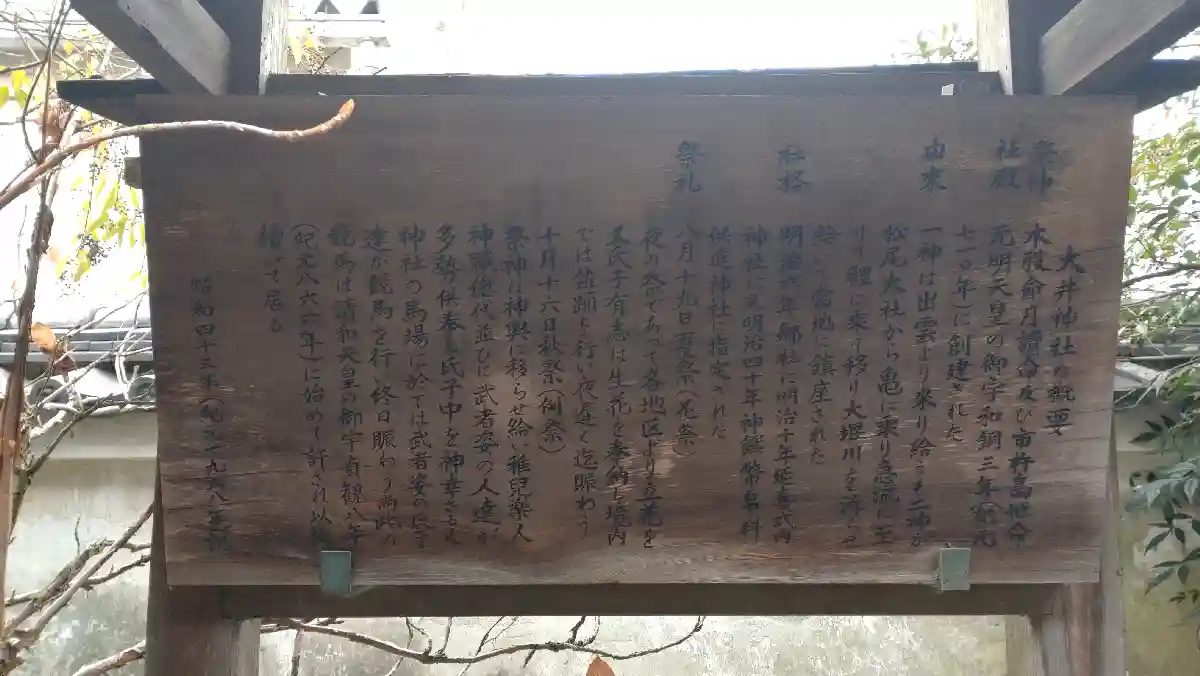 大井神社の概要
祭神 木股命月讀命及び市杵島姫命
社殿 元明天皇の御宇和銅三年(紀元
七一〇年)に創建された
由来 一神は出雲より来り給う十二神は
松尾大社から亀に乗り急流に至
りて鯉に乗り移り大堰川を済ませ
給い当地に鎮座された
社格 明治六年郷社に明治十年延喜式内
神社に又明治四十年神饌幣帛料
供進神社に指定された
祭礼 八月十九日夏祭(花祭)
夜の祭であって各地区より立花を
又氏子有志は生花を奉納し境内
では盆踊を行い夜遅く迄賑わう
十月十六日秋祭(例祭)
祭神は神輿に移らせ給い稚児楽人
神職總代並びに武者姿の人達が
多勢供奉し氏子中を神幸さええ
神社の馬場に於ては武者姿の
達が競馬を行い終日賑わう尚此の
競馬は清和天皇の御宇貞観八年
(紀元八六六年)に始めて許され以後
續いて居る
昭和四十三年(紀元一九六八年)